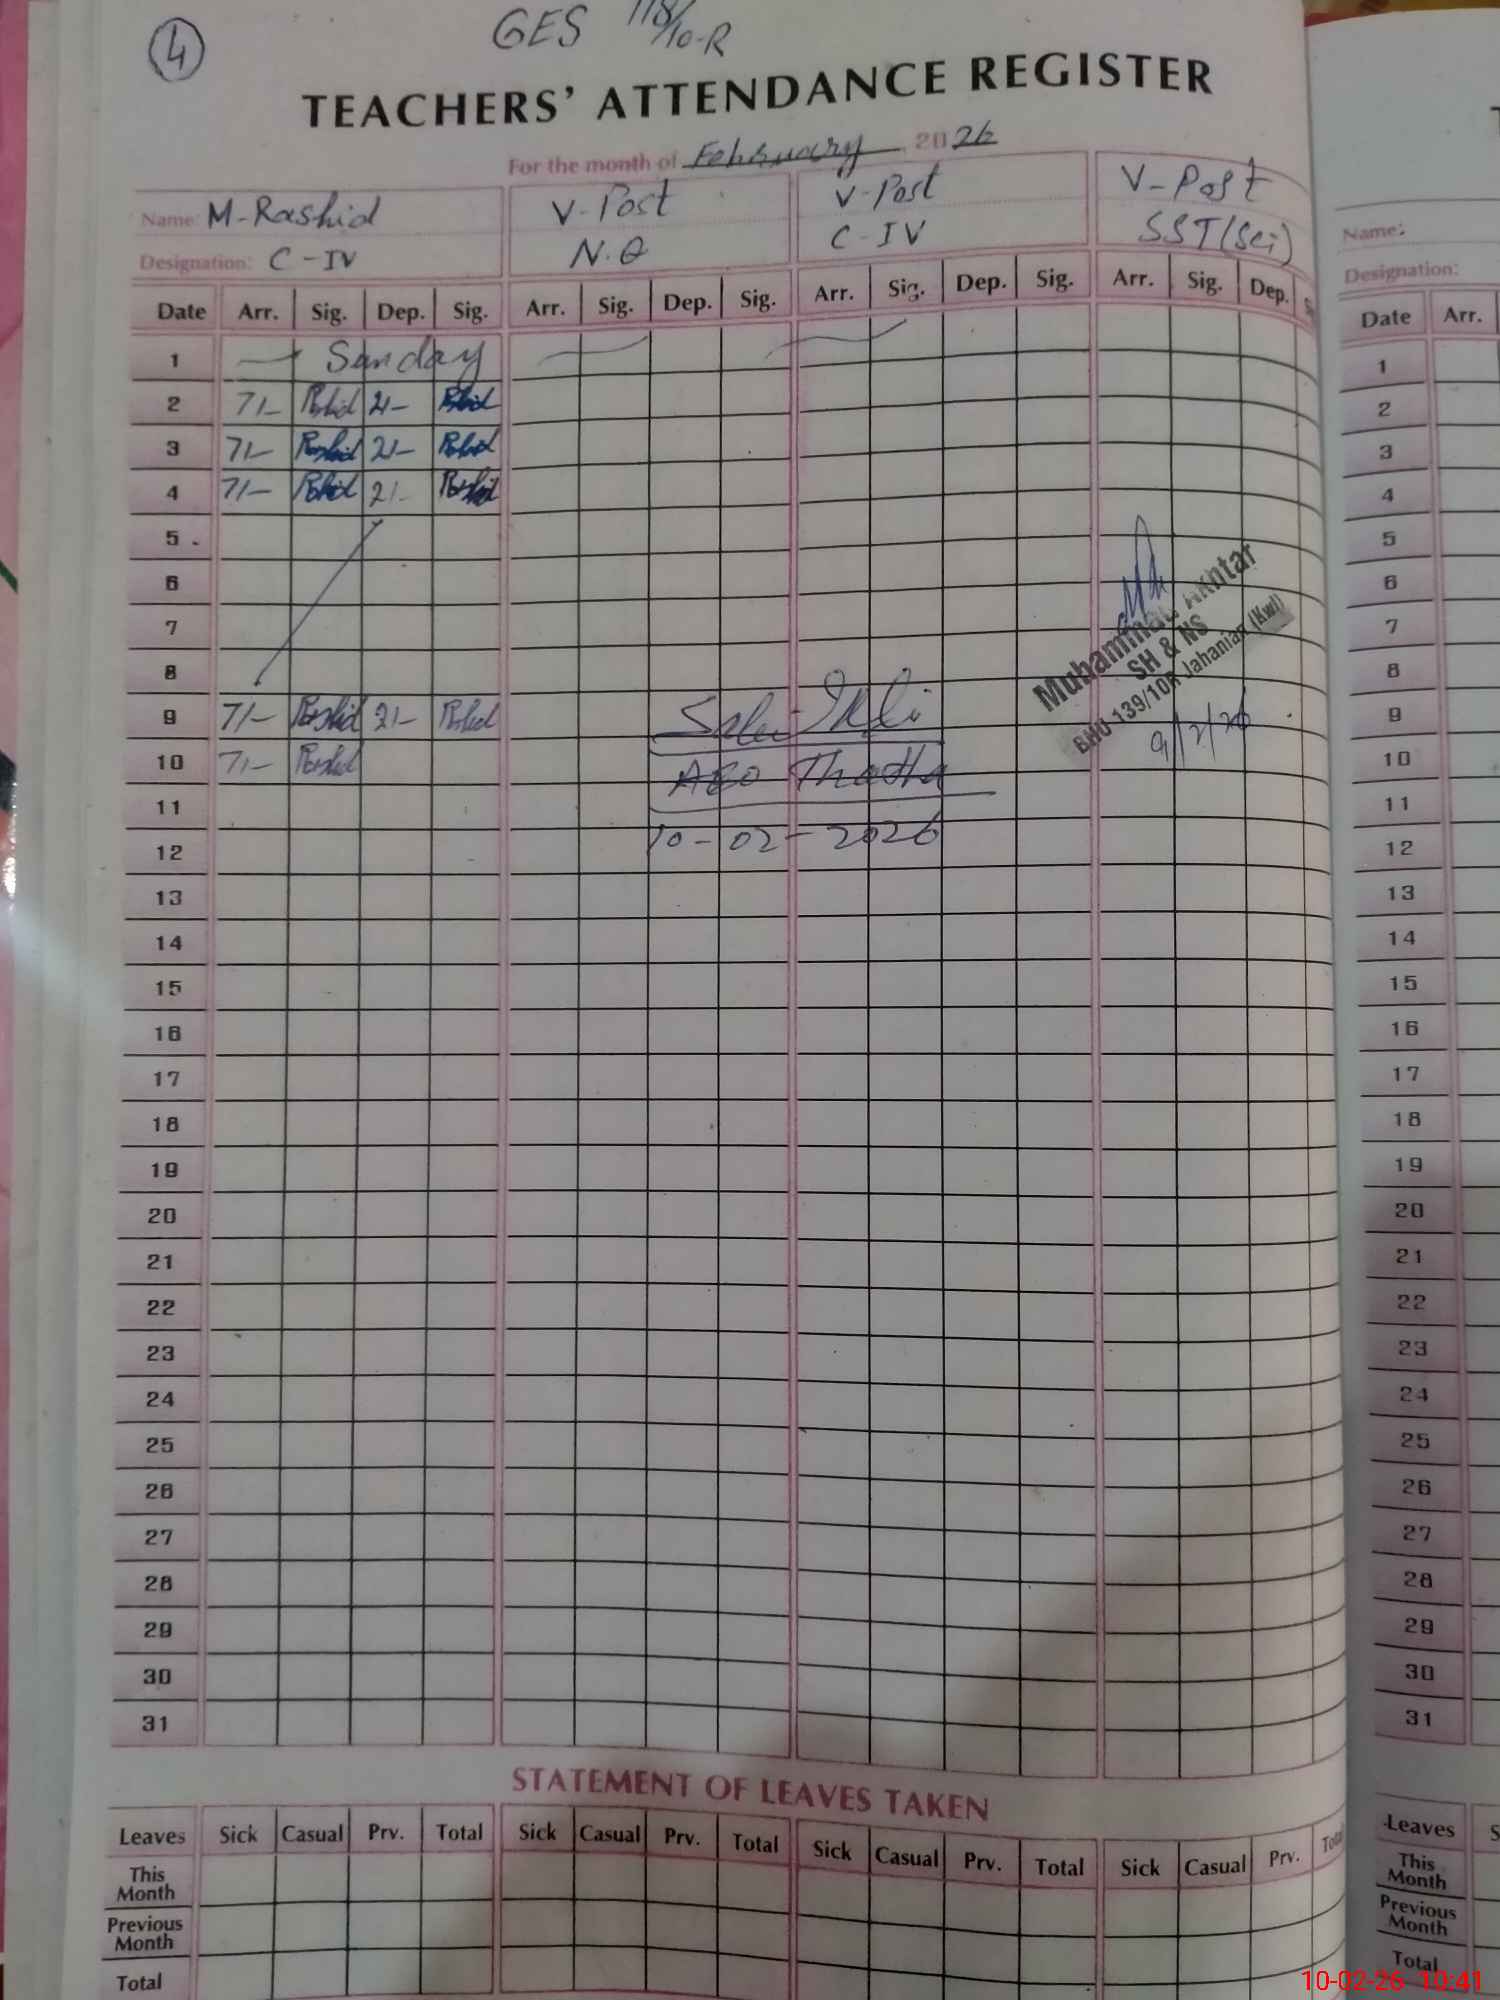 4
GES 118/10-R
TEACHERS' ATTENDANCE REGISTER
For the month of February 2026
Name: M-Rashid V-Post V-Post V-Post
Designation: C-IV N.Q C-IV SST(Sci)
Date Arr. Sig. Dep. Sig. Arr. Sig. Dep. Sig. Arr. Sig. Dep. Sig. Arr. Sig. Dep.
1 Sunday
2 7/- Rashid 2/- Rashid
3 7/- Rashid 2/- Rashid
4 7/- Rashid 2/- Rashid
5
6
7
8
9 7/- Rashid 2/- Rashid
10 7/- Rashid
11
12
13
14
15
16
17
18
19
20
21
22
23
24
25
26
27
28
29
30
31
AEO Thatha
10-02-2026
Muhammad Akhtar
SH & NS
BHU-139/10R Jahanian (Kwl)
9/2/26
STATEMENT OF LEAVES TAKEN
Leaves Sick Casual Prv. Total Sick Casual Prv. Total Sick Casual Prv. Total Sick Casual Prv. Total
This Month
Previous Month
Total
Name:
Designation:
Date Arr.
1
2
3
4
5
6
7
8
9
10
11
12
13
14
15
16
17
18
19
20
21
22
23
24
25
26
27
28
29
30
31
Leaves
This Month
Previous Month
Total
10-02-26 10:41